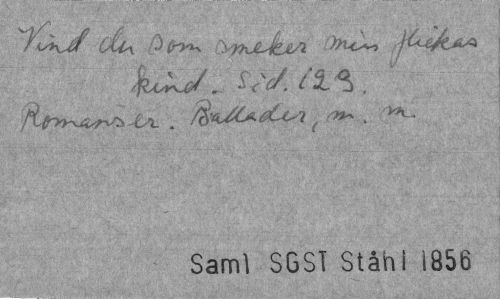 Vind du som smeker min flickas
kind. Sid. 129.
Romanser. Ballader, m. m.
Saml SGST Ståhl 1856